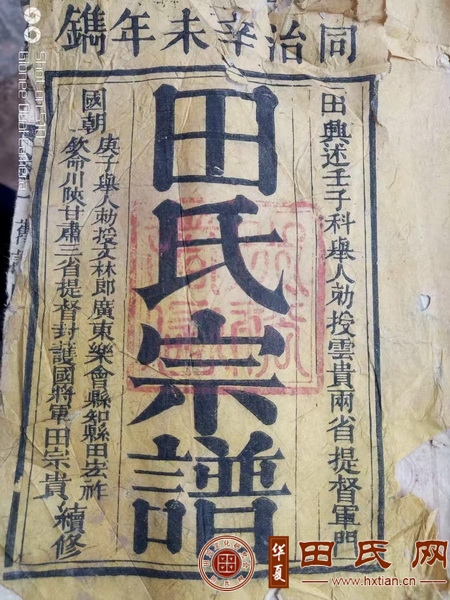 同治辛未年鐫
田興述壬子科舉人勅授雲貴兩省提督軍門
田氏宗譜
國朝
庚子舉人勅授文林郎廣東樂會縣知縣田宏祚
欽命川陝甘肅三省提督封護國將軍田宗貴
續修
華夏
田氏网
www.hxtian.cn